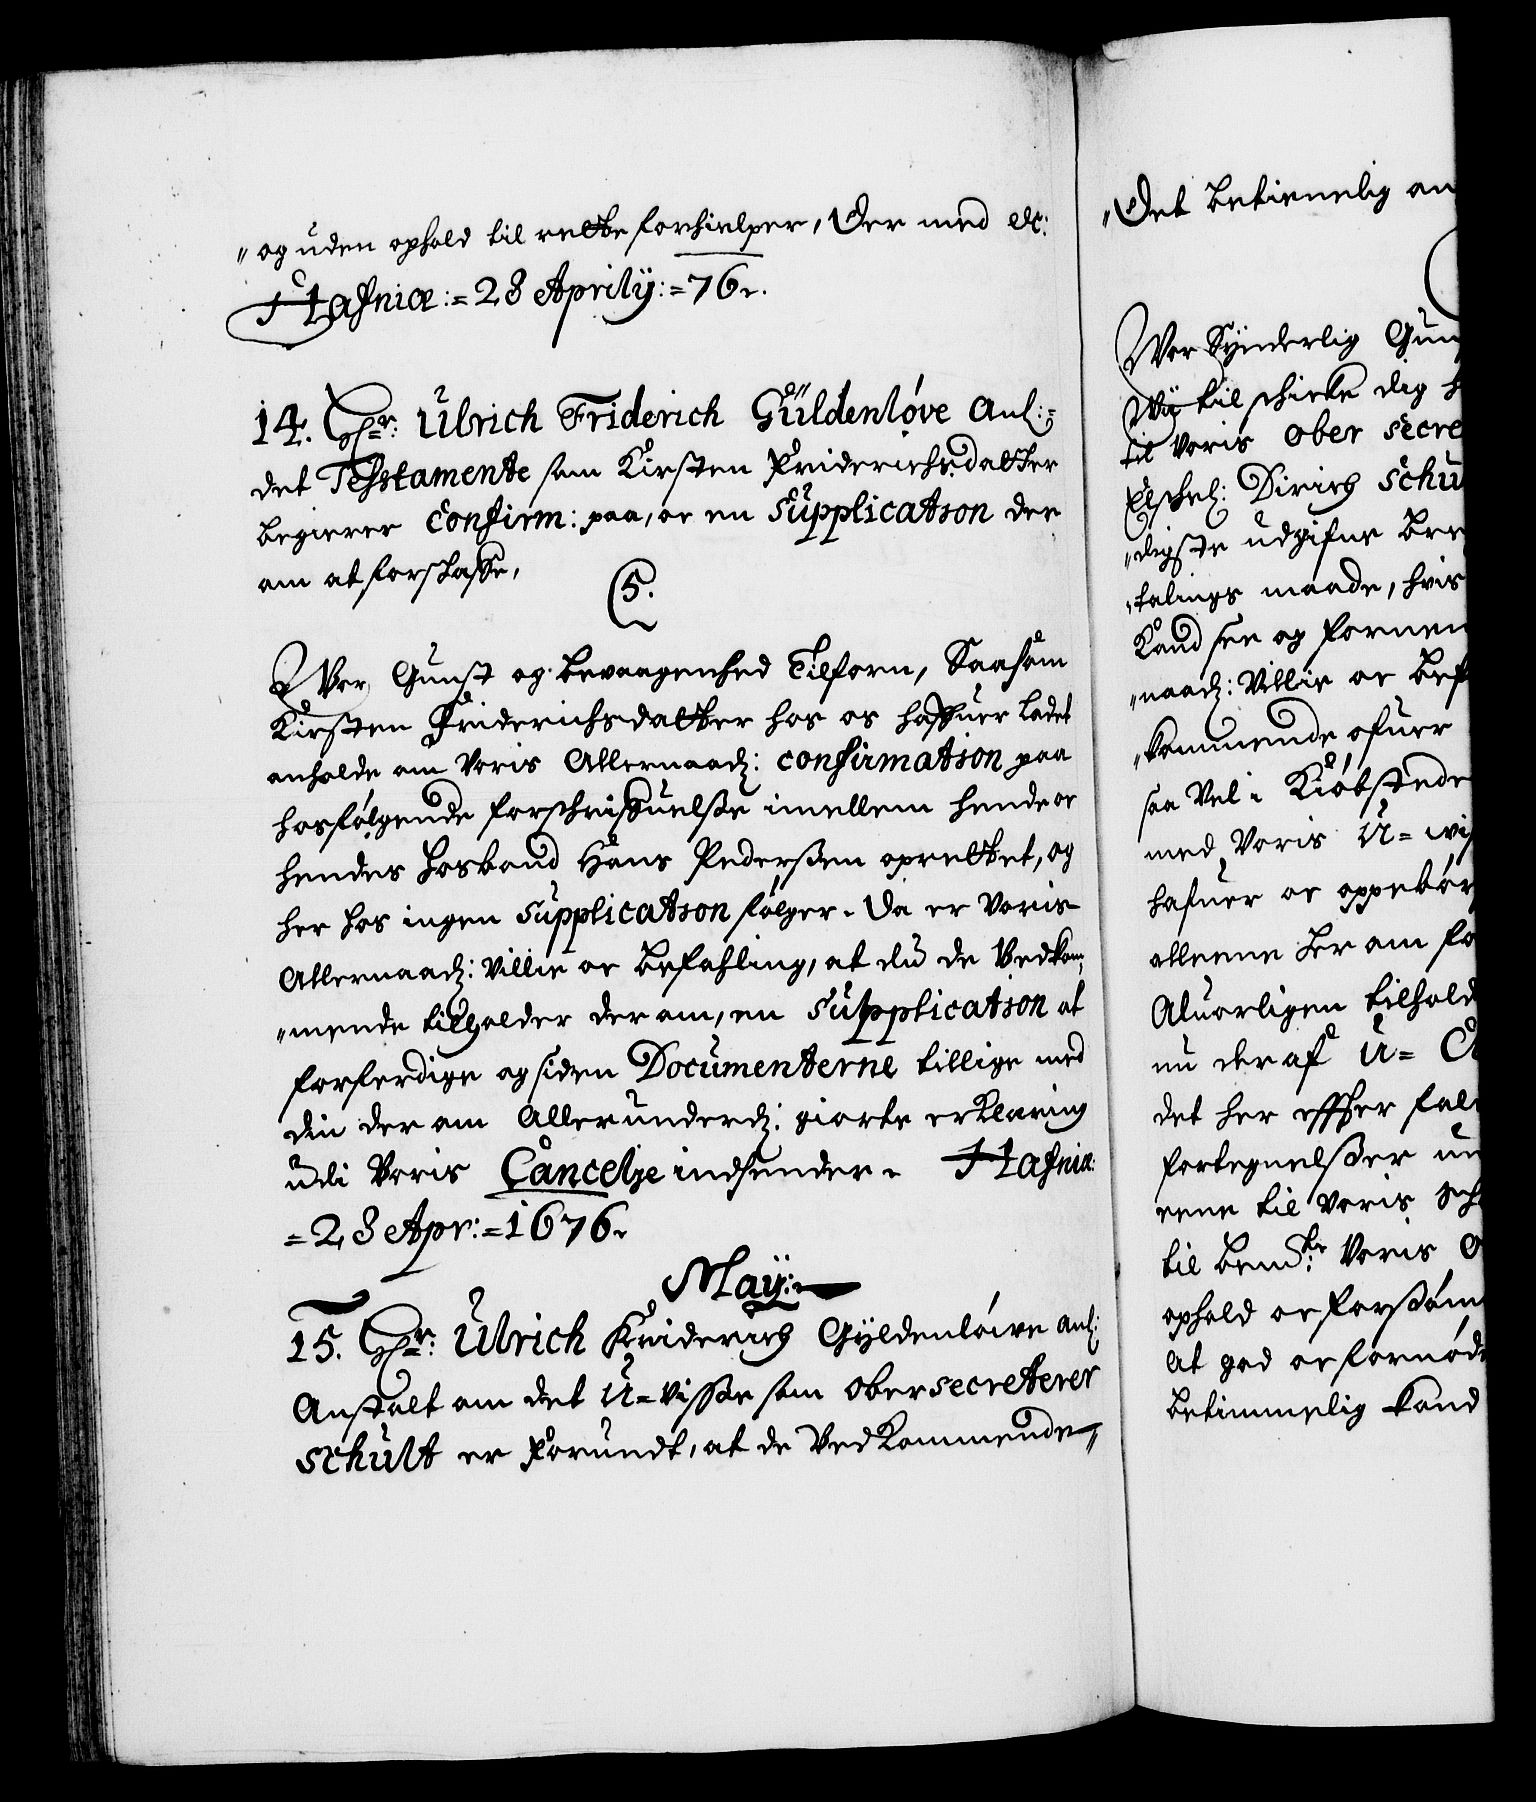 „og uden ophold til rette forhielper, Der med etc:
Hafniæ:=28 Aprilÿ:=76.
14. Hr: Ulrich Friderich Güldenløve anl:=
det Testamente som Kirsten Friderichsdatter
begierer Confirm: paa, oc en Supplication der
om at forskaffe,
5.
Vor Gunst og bevaagenhed Tilforn, Saasom
Kirsten Friderichsdatter hos os haffuer ladet
anholde om Voris Allernaad: confirmation paa
hosfølgende forschriffuelsse imellem hende oc
hendes hosbond Hans Pederssen oprettet, og
her hos ingen Supplication følger. Da er Voris
Allernaad: Villie oc befahling, at du de Vedkom„
„mende tilholder der om, en Supplication at
forferdige og siden Documenterne tillige med
din der om Allerunderd: giorte erKlæring
udi Voris Cancelje indsender. Hafniæ:
=28 Apr:=1676.
Maÿ:
15. Hr: Ulrich Friderich Gÿldenløwe anl:
Anstalt om det U=visse som Obersecreterer
Schult er Forundt, at de VedKommende„
„Det betimelig an
Vor Synderlig Gun
Wÿ til schicke dig h
til Voris Ober Secre
Elschel: Dirich Schu
„digste udgifne bre
„talings maade, hvis
Kand see og fornem
„naad: Villie oc bef
„kommende, ofuer
saa Vel i Kiøbstede
med Voris U=wis
hafuer oc oppebør
alleene der om fo
Aluorligen tilhold
nu der af U=
det her effter fal
fortegnelsser un
rene til Voris Sch
til bemte: Voris
ophold oc forsøm
At god oc fornød
betimmelig kand